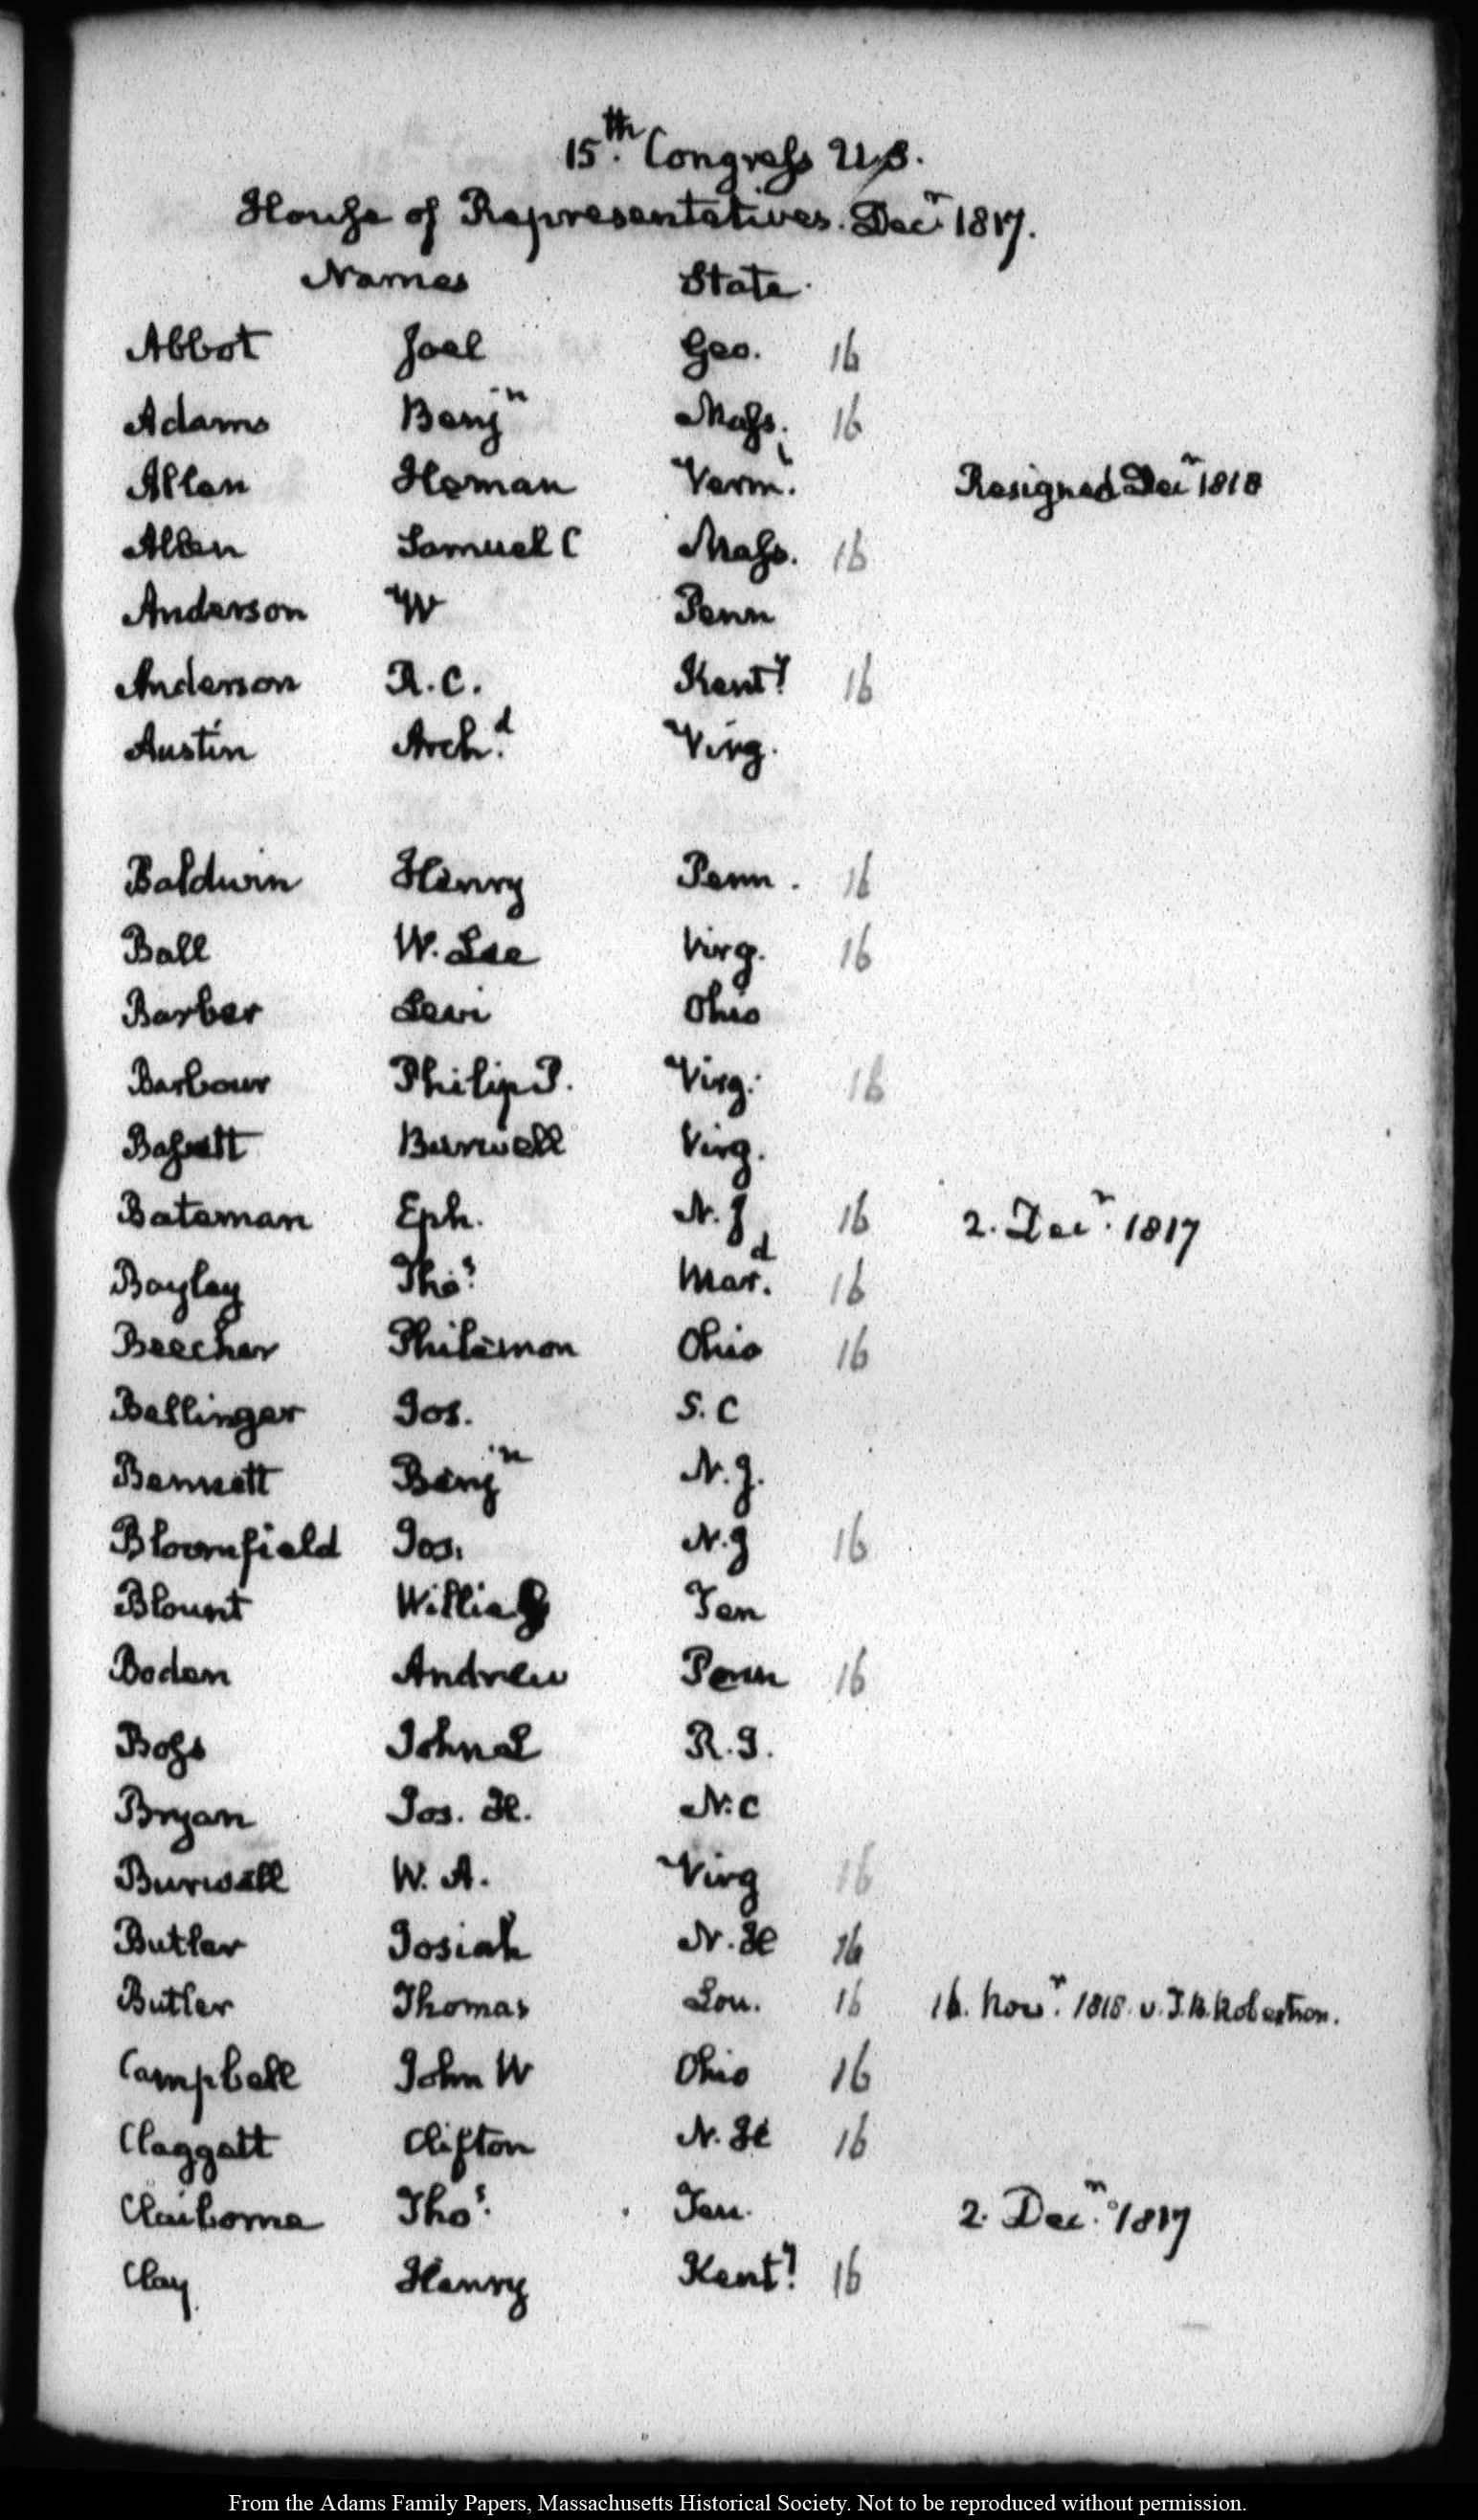 15th. Congress U.S.
House of Representatives. Decr 1817.
Names State.
Abbot Joel Geo. 16
Adams Benjn Mass. 16
Allen Heman Vermt. Resigned Decr 1818
Allen Samuel C Mass. 16
Anderson W Penn
Anderson R. C. Kenty 16
Austin Archd. Virg.
Baldwin Henry Penn. 16
Ball W. Lee Virg. 16
Barber Levi Ohio
Barbour Philip P. Virg. 16
Bassett Burwell Virg.
Bateman Eph. N. J 16 2. Decr. 1817
Bayley Thos. Mard. 16
Beecher Philemon Ohio 16
Bellinger Jos. S. C
Bennett Benjn N. J.
Bloomfield Jos. N. J 16
Blount Willie Ten
Boden Andrew Penn 16
Boss John L R. I.
Bryan Jos. H. N. C
Burwell W. A. Virg 16
Butler Josiah N. H 16
Butler Thomas Lou. 16 16. Novr. 1818. v. T. B. Robertson.
Campbell John W Ohio 16
Claggett Clifton N. H 16
Claiborne Thos. Ten. 2. Decr. 1817
Clay Henry Kenty. 16
From the Adams Family Papers, Massachusetts Historical Society. Not to be reproduced without permission.